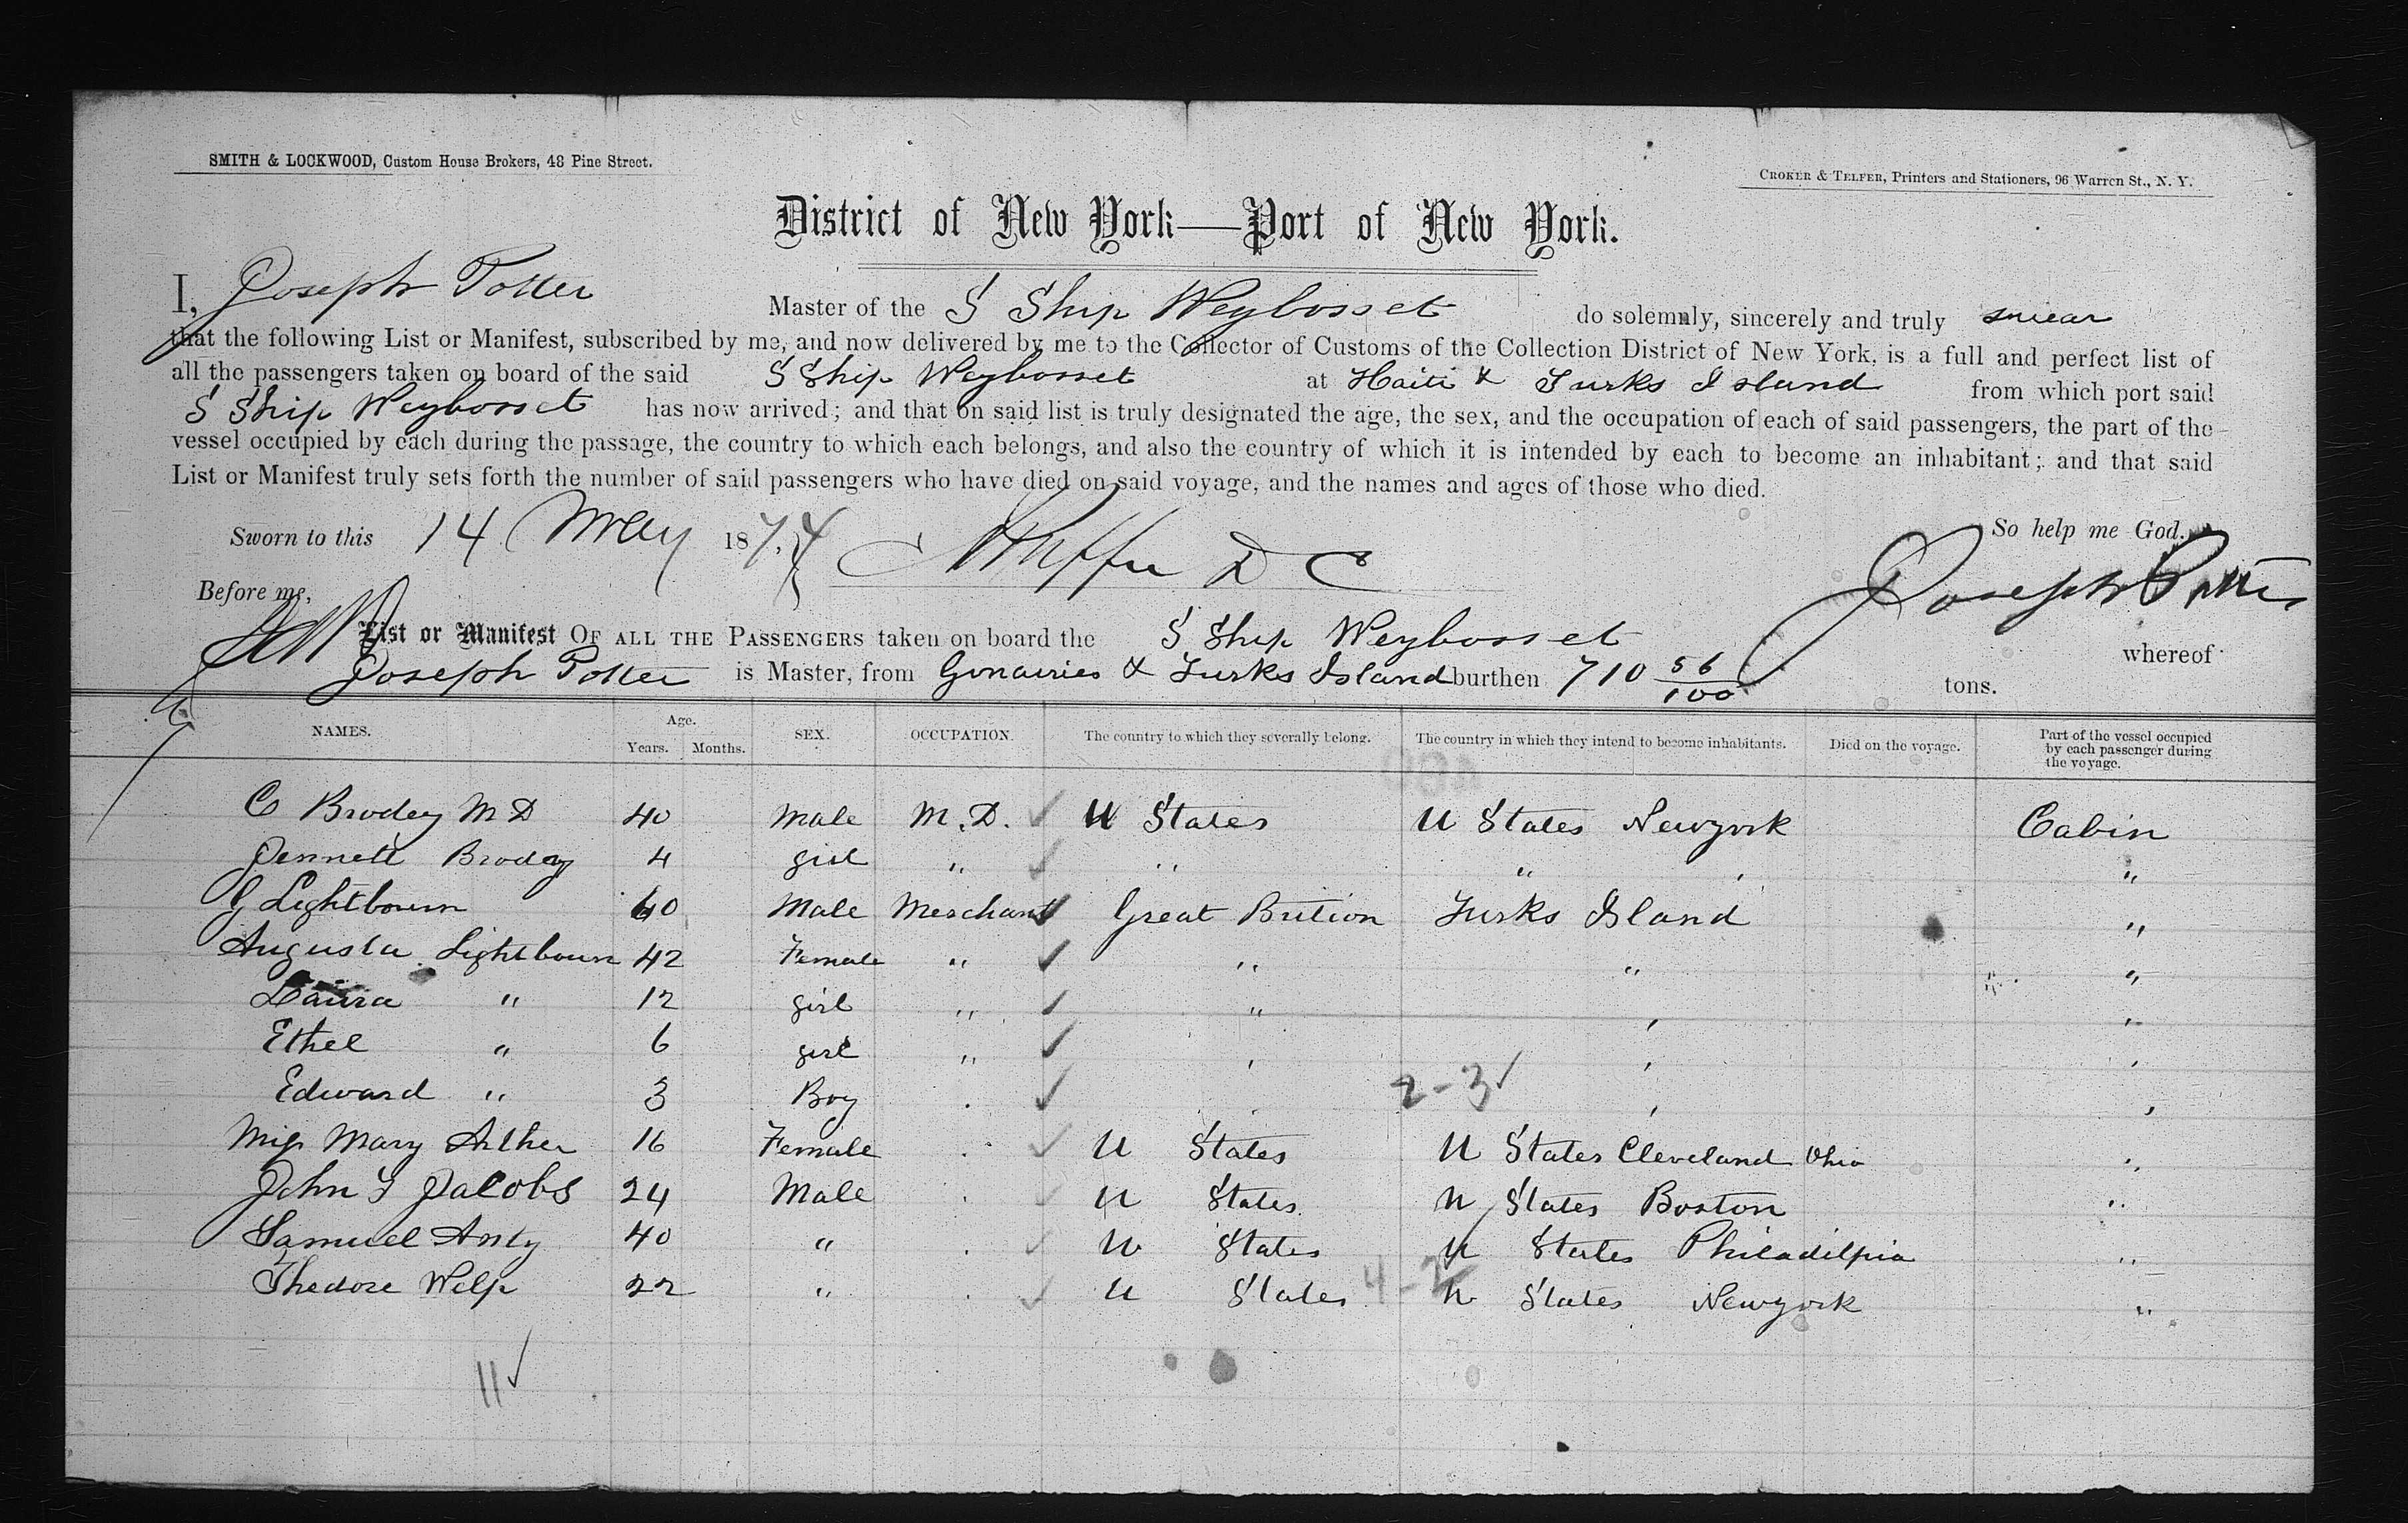 SMITH & LOCKWOOD, Custom House Brokers, 48 Pine Street.
CROKER & TELFER, Printers and Stationers, 96 Warren St., N. Y.
District of New York—Port of New York.
I, Joseph Potter Master of the S Ship Weybosset do solemnly, sincerely and truly swear
that the following List or Manifest, subscribed by me, and now delivered by me to the Collector of Customs of the Collection District of New York, is a full and perfect list of
all the passengers taken on board of the said S Ship Weybosset at Haiti & Turks Island from which port said
S Ship Weybosset has now arrived; and that on said list is truly designated the age, the sex, and the occupation of each of said passengers, the part of the
vessel occupied by each during the passage, the country to which each belongs, and also the country of which it is intended by each to become an inhabitant; and that said
List or Manifest truly sets forth the number of said passengers who have died on said voyage, and the names and ages of those who died.
Sworn to this 14 May 1874 D C So help me God.
Before me, Joseph Potter
List or Manifest OF ALL THE PASSENGERS taken on board the S Ship Weybosset whereof
Joseph Potter is Master, from Gonaivies & Turks Island burthen 710 56/100 tons.
NAMES. Age. Years. Months. SEX. OCCUPATION. The country to which they severally belong. The country in which they intend to become inhabitants. Died on the voyage. Part of the vessel occupied by each passenger during the voyage.
C Brodey M D 40 Male M. D. ✓ U States U States Newyork Cabin
Jennett Brodey 4 girl " ✓ " " " "
G Lightbourn 60 Male Merchant ✓ Great Brition Turks Island "
Augusta Lightbourn 42 Female " ✓ " " "
Laura " 12 girl " ✓ " " "
Ethel " 6 girl " ✓ " " "
Edward " 3 Boy " ✓ " 2-3 ✓ " "
Miss Mary Arther 16 Female " ✓ U States U States Cleveland Ohio "
John F Jacobs 24 Male " ✓ U States U States Boston "
Samuel 40 " " ✓ U States U States Philadilpia "
Thedore Welp 22 " " ✓ U States 4-2 U States Newyork "
11 ✓